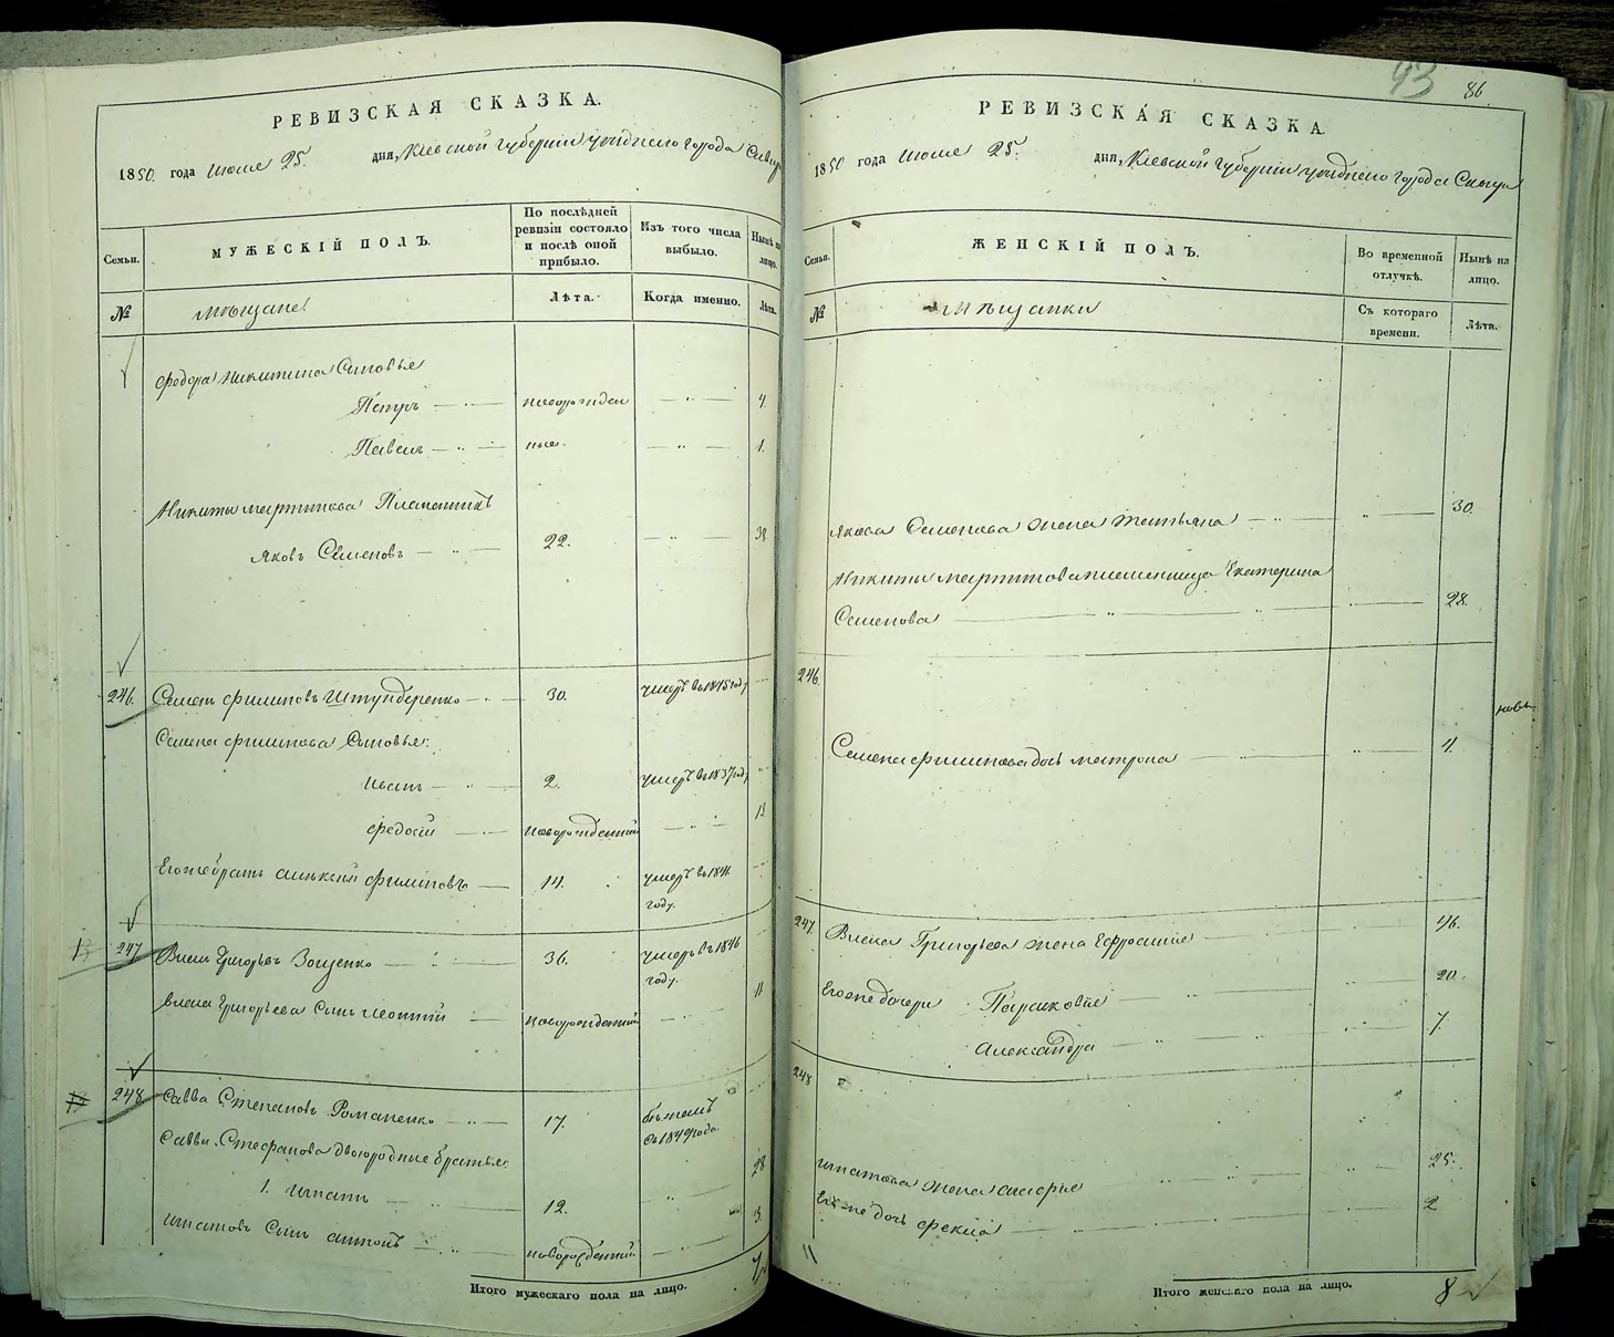 РЕВИЗСКАЯ СКАЗКА.
1850. года июня 25. дня, Кіевской губерніи уѣзднаго города Сквир
Семьи.
МУЖЕСКІЙ ПОЛЪ.
По послѣдней ревизіи состояло и послѣ оной прибыло.
Изъ того числа выбыло.
Нынѣ на лицо.
№
мѣщане
Лѣта.
Когда именно.
Лѣта.
Федора Никитина Сыновья
Петръ новорожден 4.
Павелъ ные. 1.
Никиты мартинова Пламенникъ
Яковъ Семеновъ 22. 38
246. Семенъ Филиповъ Штундеренко 30. умеръ въ 1845 году
Семена филипова Сыновья:
Иванъ 2. умеръ въ 1837 году
федосій новорожденный 13
Его же братъ Алексѣй филиповъ 14. умеръ въ 1841. году.
13 247 Власъ Григорьевъ Зощенко 36. умеръ въ 1846 году.
власа Григорьева Сынъ Леонтій новорожденный 11
248 Савва Степановъ Романенко 17. бѣжалъ съ 1849 года.
Саввы Стефанова двоюродные братья:
1. Игнатъ 12. 28
Игнатовъ Сынъ антонъ новорожденный 3.
Итого мужескаго пола на лицо. 7
93 86.
РЕВИЗСКАЯ СКАЗКА
1850 года июня 25. дня, Кіевской губерніи уѣзднаго города Сквира
Семьи.
ЖЕНСКІЙ ПОЛЪ.
Во временной отлучкѣ.
Нынѣ на лицо.
№
Мѣщанки
Съ котораго времени.
Лѣта.
Якова Семенова жена Татьяна 30.
Никиты мартинова племенница Екатерина
Семенова 28.
246.
Семена филипова дочь матрона 11.
247. Власа Григорьева жена Ефросинія 46.
Его же дочери Параскевія 20.
Александра 7.
248
Игнатова жена 25.
Его же дочь 2
Итого женскаго пола на лицо. 8